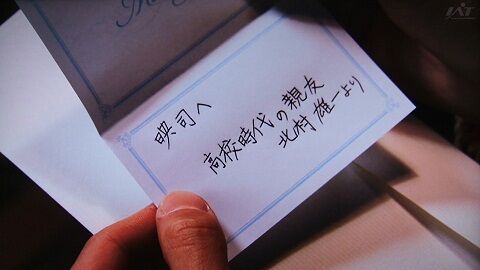 映司へ
高校時代の親友
北村 雄一より